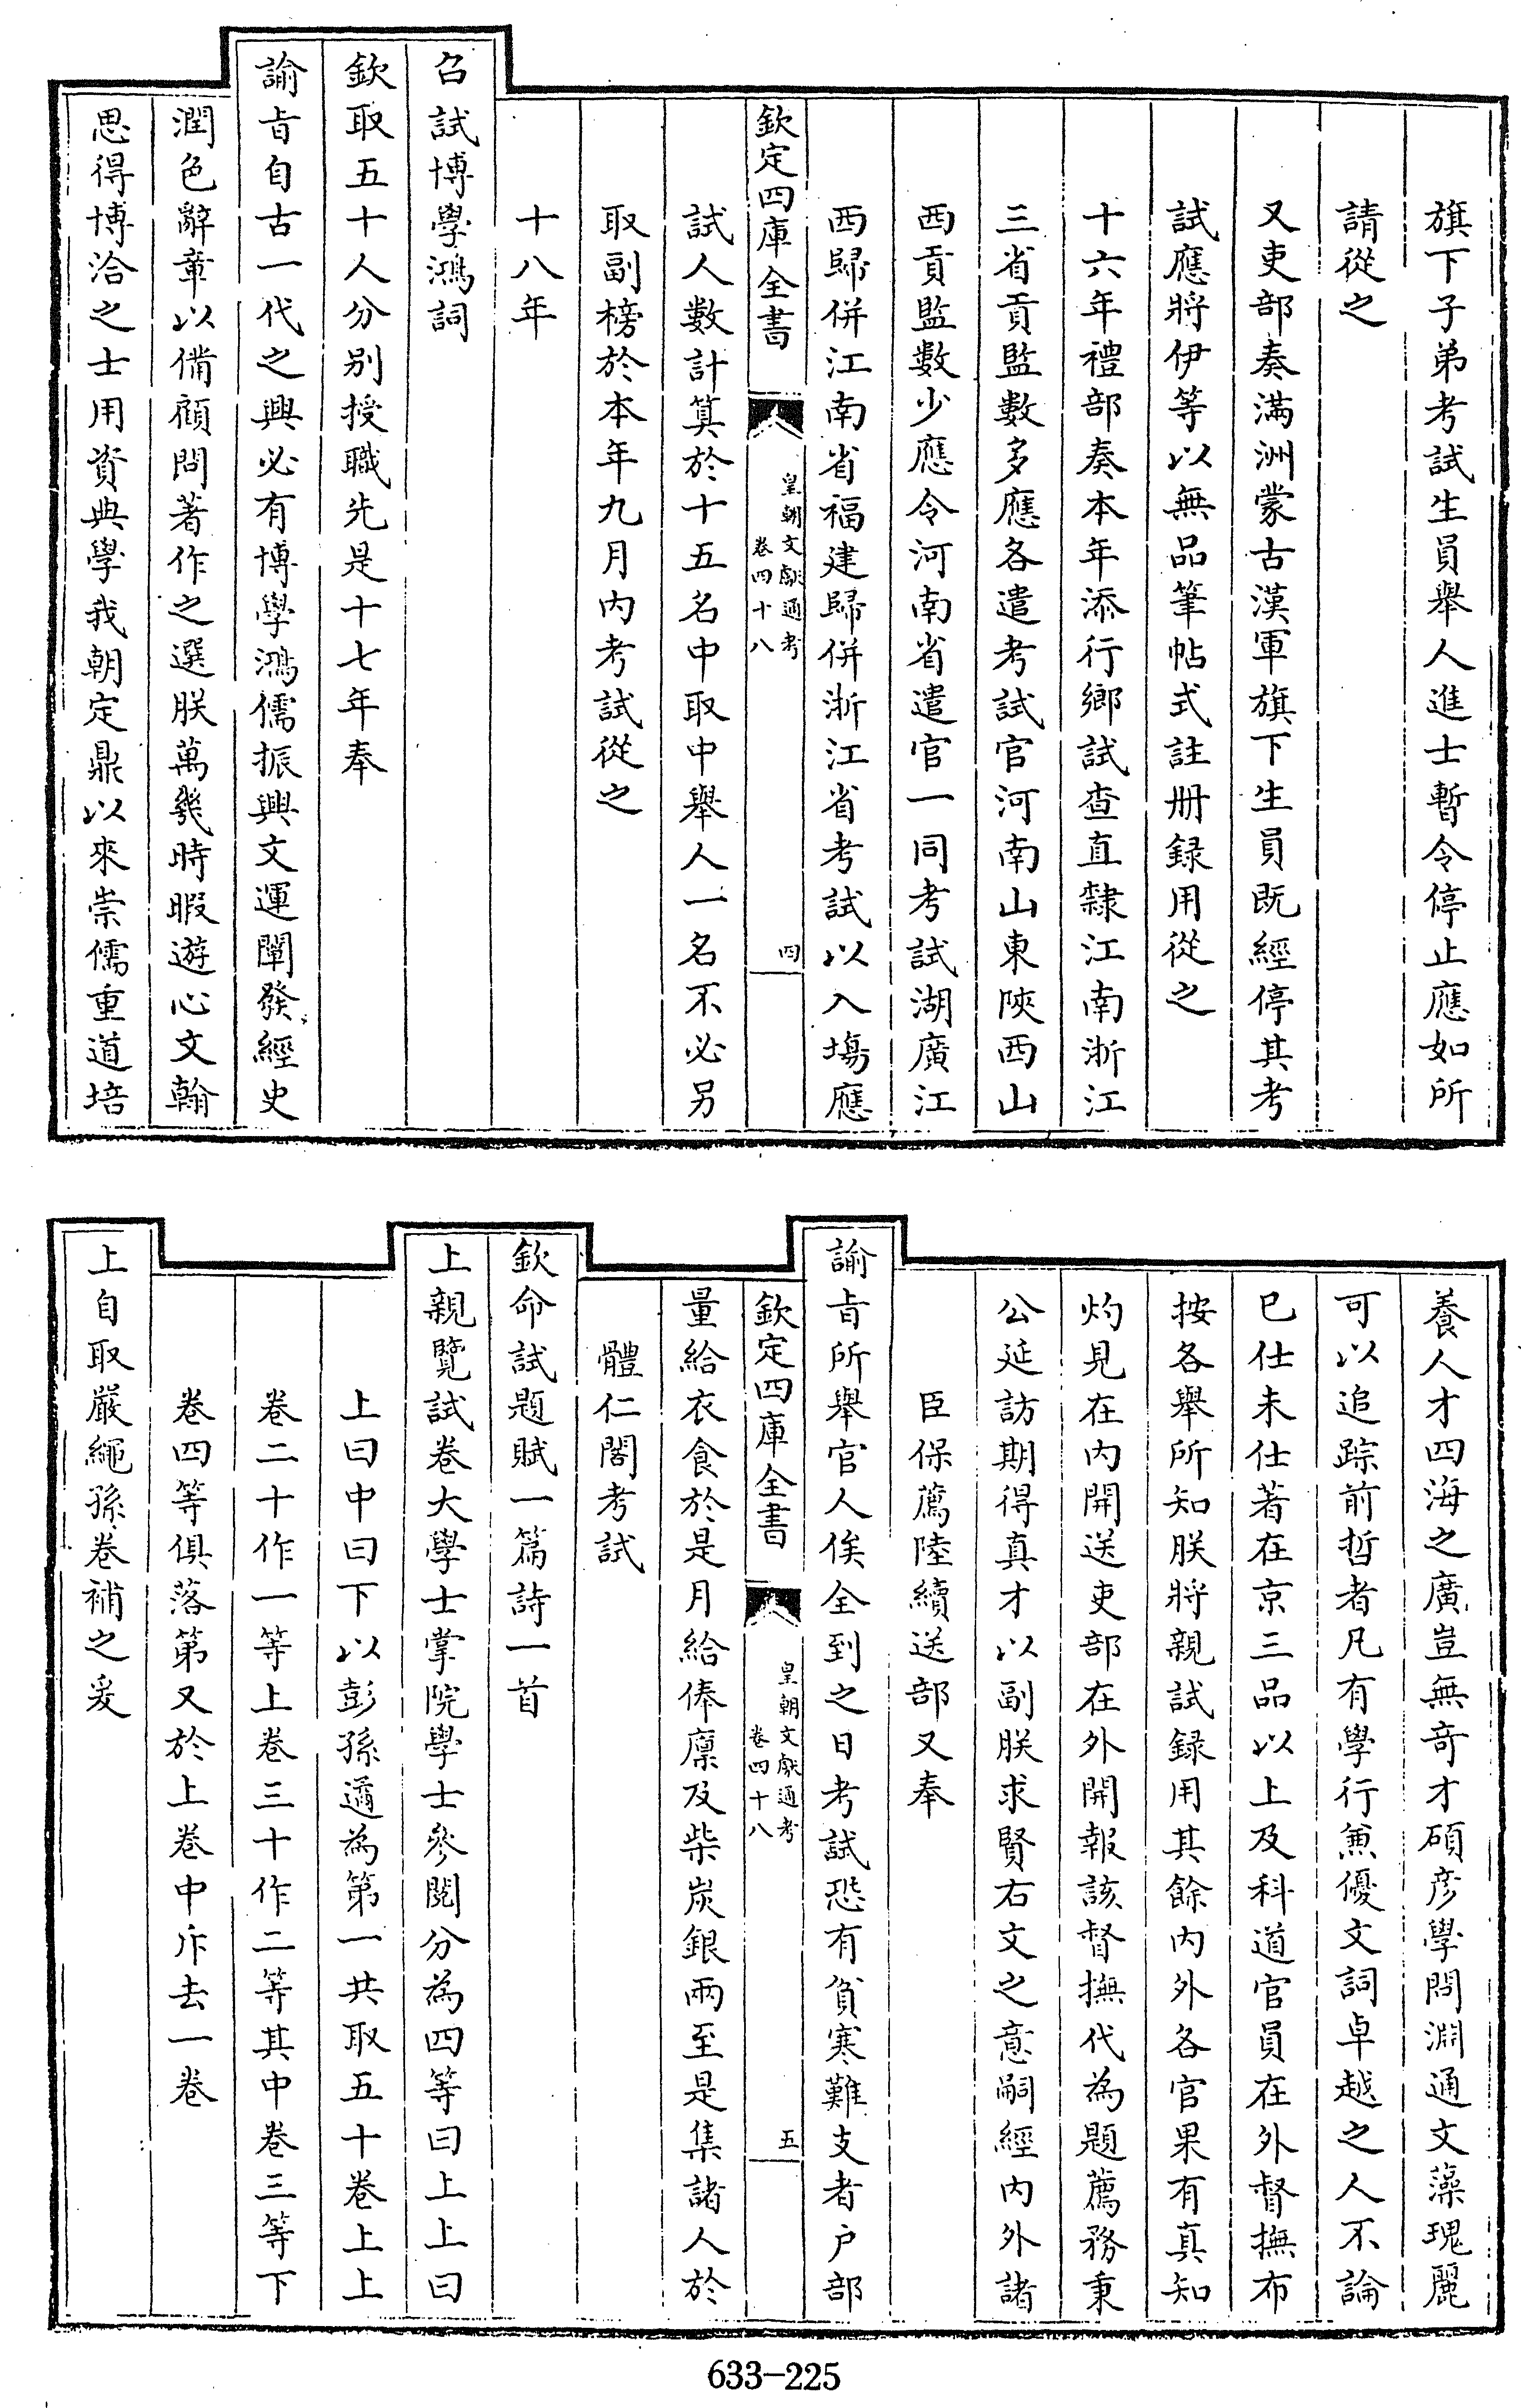 旗下子弟考試生員舉人進士暫令停止應如所
請從之
又吏部奏滿洲蒙古漢軍旗下生員既經停其考
試應將伊等以無品筆帖式註冊録用從之
十六年禮部奏本年添行鄉試查直隸江南浙江
三省貢監數多應各遣考試官河南山東陝西山
西貢監數少應令河南省遣官一同考試湖廣江
西歸併江南省福建歸併浙江省考試以入塲應
欽定四庫全書
皇朝文獻通考
卷四十八
四
試人數計算於十五名中取中舉人一名不必另
取副榜於本年九月内考試從之
十八年
召試博學鴻詞
欽取五十人分别授職先是十七年奉
諭旨自古一代之興必有博學鴻儒振興文運闡發經史
潤色辭章以備顧問著作之選朕萬幾時暇遊心文翰
思得博洽之士用資典學我朝定鼎以來崇儒重道培
養人才四海之廣豈無奇才碩彦學問淵通文藻瑰麗
可以追踪前哲者凡有學行兼優文詞卓越之人不論
已仕未仕著在京三品以上及科道官員在外督撫布
按各舉所知朕將親試録用其餘内外各官果有真知
灼見在内開送吏部在外開報該督撫代為題薦務秉
公延訪期得真才以副朕求賢右文之意嗣經内外諸
臣保薦陸續送部又奉
諭旨所舉官人俟全到之日考試恐有貧寒難支者户部
欽定四庫全書
皇朝文獻通考
卷四十八
五
量給衣食於是月給俸廩及柴炭銀兩至是集諸人於
體仁閣考試
欽命試題賦一篇詩一首
上親覽試卷大學士掌院學士參閱分為四等曰上上曰
上曰中曰下以彭孫遹為第一共取五十卷上上
卷二十作一等上卷三十作二等其中卷三等下
卷四等俱落第又於上卷中斥去一卷
上自取嚴繩孫卷補之爰
633-225